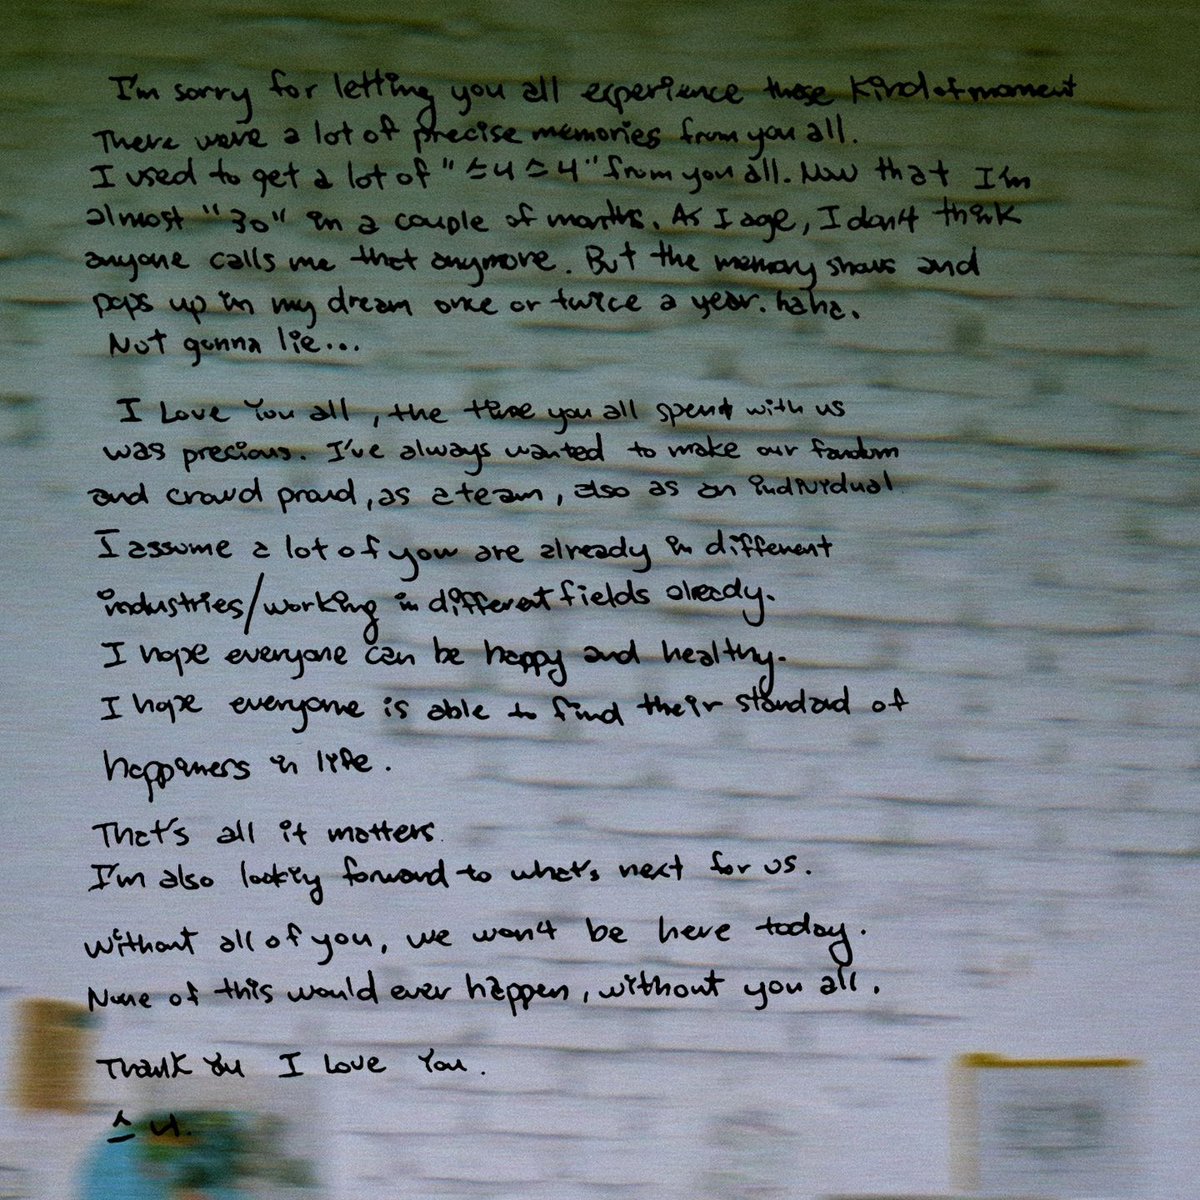 I'm sorry for letting you all experience those kind of moment
There were a lot of precise memories from you all.
I used to get a lot of "스니스니" from you all. Now that I'm
almost "30" in a couple of months. As I age, I don't think
anyone calls me that anymore. But the memory shows and
pops up in my dream once or twice a year. haha.
Not gonna lie...
I Love You all, the time you all spent with us
was precious. I've always wanted to make our fandom
and crowd proud, as a team, also as an individual.
I assume a lot of you are already in different
industries/working in different fields already.
I hope everyone can be happy and healthy.
I hope everyone is able to find their standard of
happiness in life.
That's all it matters.
I'm also looking forward to what's next for us.
Without all of you, we won't be here today.
None of this would ever happen, without you all.
Thank You I Love You.
스니.